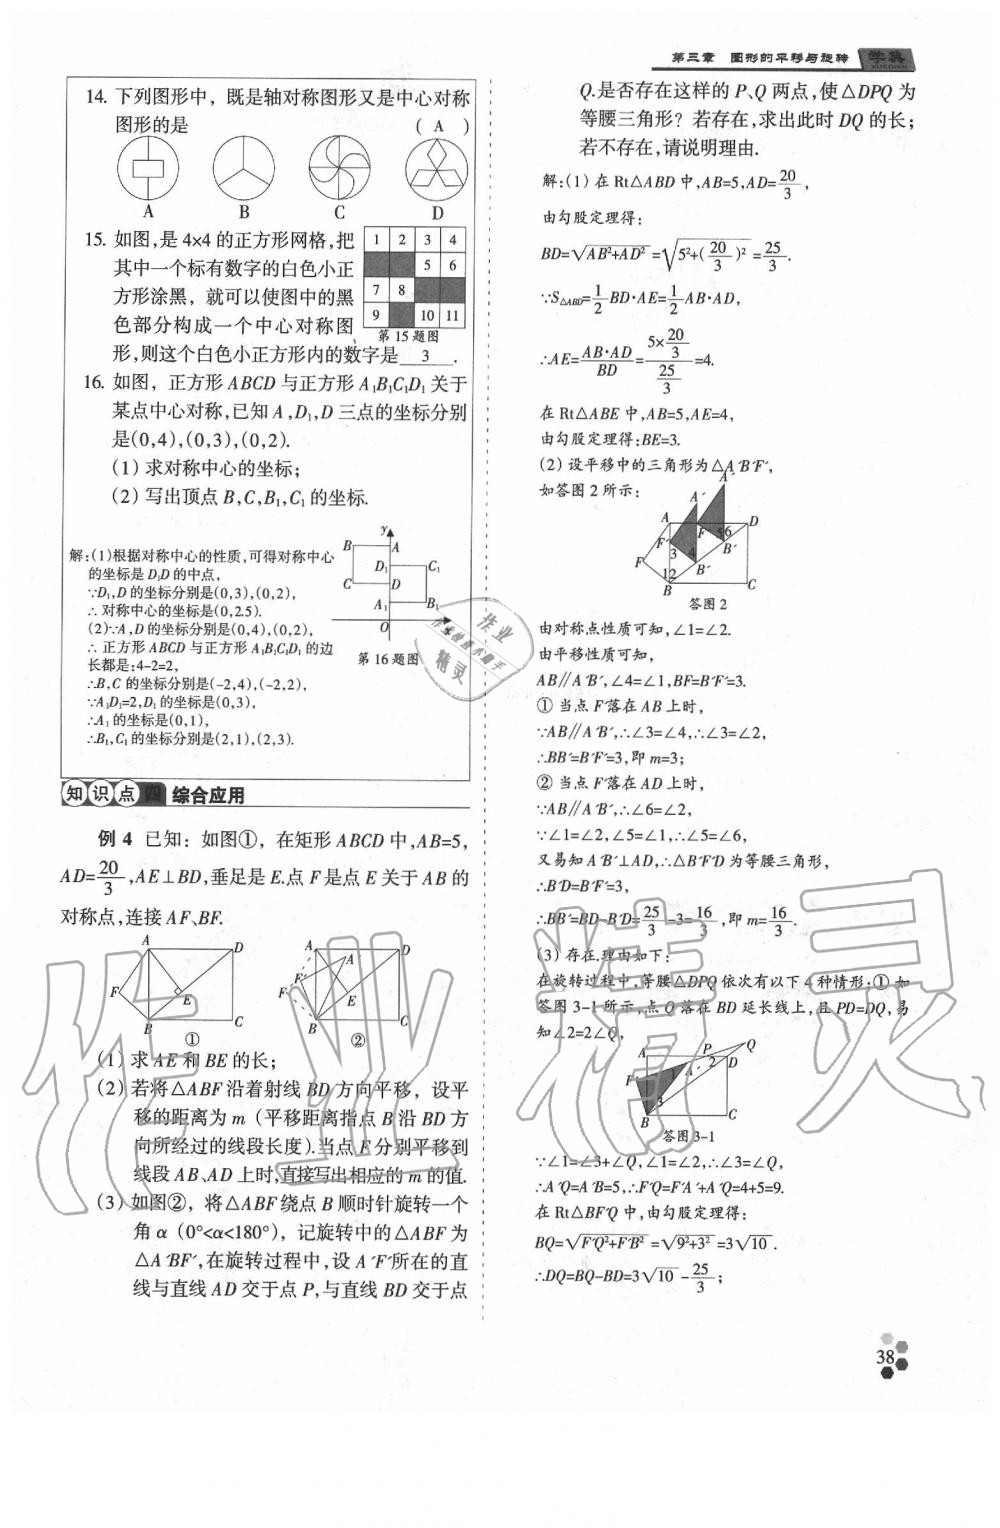 第三章　图形的平移与旋转　学典
XUEDIAN
14. 下列图形中，既是轴对称图形又是中心对称
图形的是　( A )
A　B　C　D
15. 如图,是 4×4 的正方形网格,把
其中一个标有数字的白色小正
方形涂黑，就可以使图中的黑
色部分构成一个中心对称图
形,则这个白色小正方形内的数字是 3 .
1 2 3 4
5 6
7 8
9 10 11
第 15 题图
16. 如图，正方形 ABCD 与正方形 A₁B₁C₁D₁ 关于
某点中心对称,已知 A,D₁,D 三点的坐标分别
是(0,4),(0,3),(0,2).
(1) 求对称中心的坐标；
(2) 写出顶点 B,C,B₁,C₁ 的坐标.
解:(1)根据对称中心的性质,可得对称中心
的坐标是 D₁D 的中点,
∵D₁,D 的坐标分别是(0,3),(0,2),
∴对称中心的坐标是(0,2.5).
(2)∵A,D 的坐标分别是(0,4),(0,2),
∴正方形 ABCD 与正方形 A₁B₁C₁D₁ 的边
长都是:4-2=2,
∴B,C 的坐标分别是(-2,4),(-2,2),
∵A₁D₁=2,D₁ 的坐标是(0,3),
∴A₁ 的坐标是(0,1),
∴B₁,C₁ 的坐标分别是(2,1),(2,3).
y
B A
D₁ C₁
C D
A₁ B₁
O x
第 16 题图
知识点四 综合应用
例 4 已知：如图①，在矩形 ABCD 中,AB=5,
AD=20/3,AE⊥BD,垂足是 E.点 F 是点 E 关于 AB 的
对称点,连接 AF、BF.
A D
F E
B C
①
A D
F′ A′
F E
B C
②
(1) 求 AE 和 BE 的长；
(2) 若将△ABF 沿着射线 BD 方向平移，设平
移的距离为 m（平移距离指点 B 沿 BD 方
向所经过的线段长度).当点 F 分别平移到
线段 AB、AD 上时,直接写出相应的 m 的值.
(3) 如图②，将△ABF 绕点 B 顺时针旋转一个
角 α（0°<α<180°)，记旋转中的△ABF 为
△A′BF′,在旋转过程中,设 A′F′所在的直
线与直线 AD 交于点 P,与直线 BD 交于点
Q.是否存在这样的 P、Q 两点,使△DPQ 为
等腰三角形？若存在,求出此时 DQ 的长；
若不存在,请说明理由.
解:(1) 在 Rt△ABD 中,AB=5,AD=20/3,
由勾股定理得:
BD=√(AB²+AD²)=√(5²+(20/3)²)=25/3.
∵S△ABD=1/2 BD·AE=1/2 AB·AD,
∴AE=(AB·AD)/BD=(5×20/3)/(25/3)=4.
在 Rt△ABE 中,AB=5,AE=4,
由勾股定理得:BE=3.
(2) 设平移中的三角形为△A′B′F′,
如答图 2 所示:
A′
A′
A D
F′ 5 6
F′ 3 4 B′
F B′
1 2
B C
答图 2
由对称点性质可知,∠1=∠2.
由平移性质可知,
AB∥A′B′,∠4=∠1,BF=B′F′=3.
① 当点 F′落在 AB 上时,
∵AB∥A′B′,∴∠3=∠4,∴∠3=∠2,
∴BB′=B′F′=3,即 m=3;
② 当点 F′落在 AD 上时,
∵AB∥A′B′,∴∠6=∠2,
∵∠1=∠2,∠5=∠1,∴∠5=∠6,
又易知 A′B′⊥AD,∴△B′F′D 为等腰三角形,
∴B′D=B′F′=3,
∴BB′=BD-B′D=25/3-3=16/3,即 m=16/3.
(3) 存在.理由如下:
在旋转过程中,等腰△DPQ 依次有以下 4 种情形:① 如
答图 3-1 所示,点 Q 落在 BD 延长线上,且 PD=DQ,易
知∠2=2∠Q,
Q
A P
1 2 D
F
3
B C
答图 3-1
∵∠1=∠3+∠Q,∠1=∠2,∴∠3=∠Q,
∴A′Q=A′B=5,∴F′Q=F′A′+A′Q=4+5=9.
在 Rt△BF′Q 中,由勾股定理得:
BQ=√(F′Q²+F′B²)=√(9²+3²)=3√10.
∴DQ=BQ-BD=3√10-25/3;
38
作业精灵
作业检查小助手
作业精灵